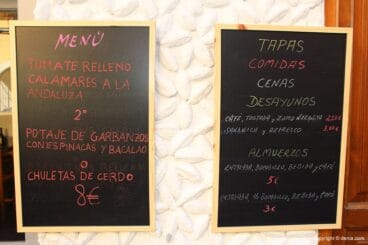 MENÚ
TOMATE RELLENO
CALAMARES A LA
ANDALUZA
2º
POTAJE DE GARBANZOS
CON ESPINACAS Y BACALAO
O
CHULETAS DE CERDO
8€
TAPAS
COMIDAS
CENAS
DESAYUNOS
CAFE, TOSTADA Y ZUMO NARANJA 2,50€
SANDWICH Y REFRESCO 3,00€
ALMUERZOS
ENTRADA, BOCADILLO, BEBIDA Y CAFE
5€
ENTRADA, ½ BOCADILLO, BEBIDA Y CAFE
3€
copyright © denia.com